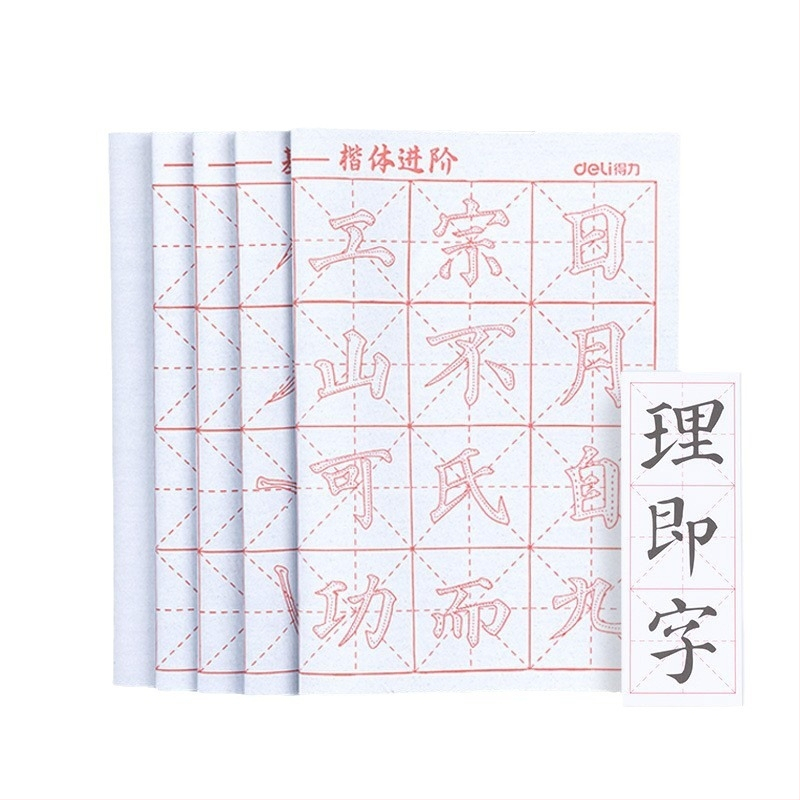 楷体进阶
deli得力
工宗日
山不月
可氏自
功而九
理
即
字